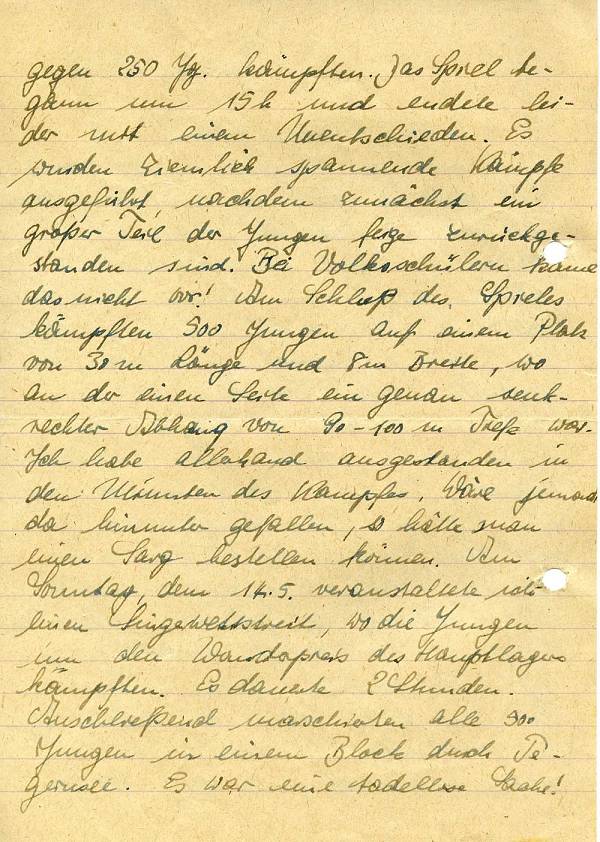 gegen 250 Jg. kämpften. Das Spiel be-
gann um 15h und endete lei-
der mit einem Unentschieden. Es
wurden ziemlich spannende Kämpfe
ausgeführt, nachdem zunächst ein
großer Teil der Jungen feige zurückge-
standen sind. Bei Volksschülern käme
das nicht vor! Am Schluß des Spieles
kämpften 500 Jungen auf einem Platz
von 30 m Länge und 8 m Breite, wo
an der einen Seite ein genau senk-
rechter Abhang von 90-100 m Tiefe war.
Ich habe allerhand ausgestanden in
den Minuten des Kampfes. Wäre jemand
da hinunter gefallen, so hätte man
einen Sarg bestellen können. Am
Sonntag, dem 14.5. veranstaltete ich
einen Singewettstreit, wo die Jungen
um den Wanderpreis des Hauptlagers
kämpften. Es dauerte 2 Stunden.
Anschließend marschierten alle 500
Jungen in einem Block durch Te-
gernsee. Es war eine tadellose Sache!